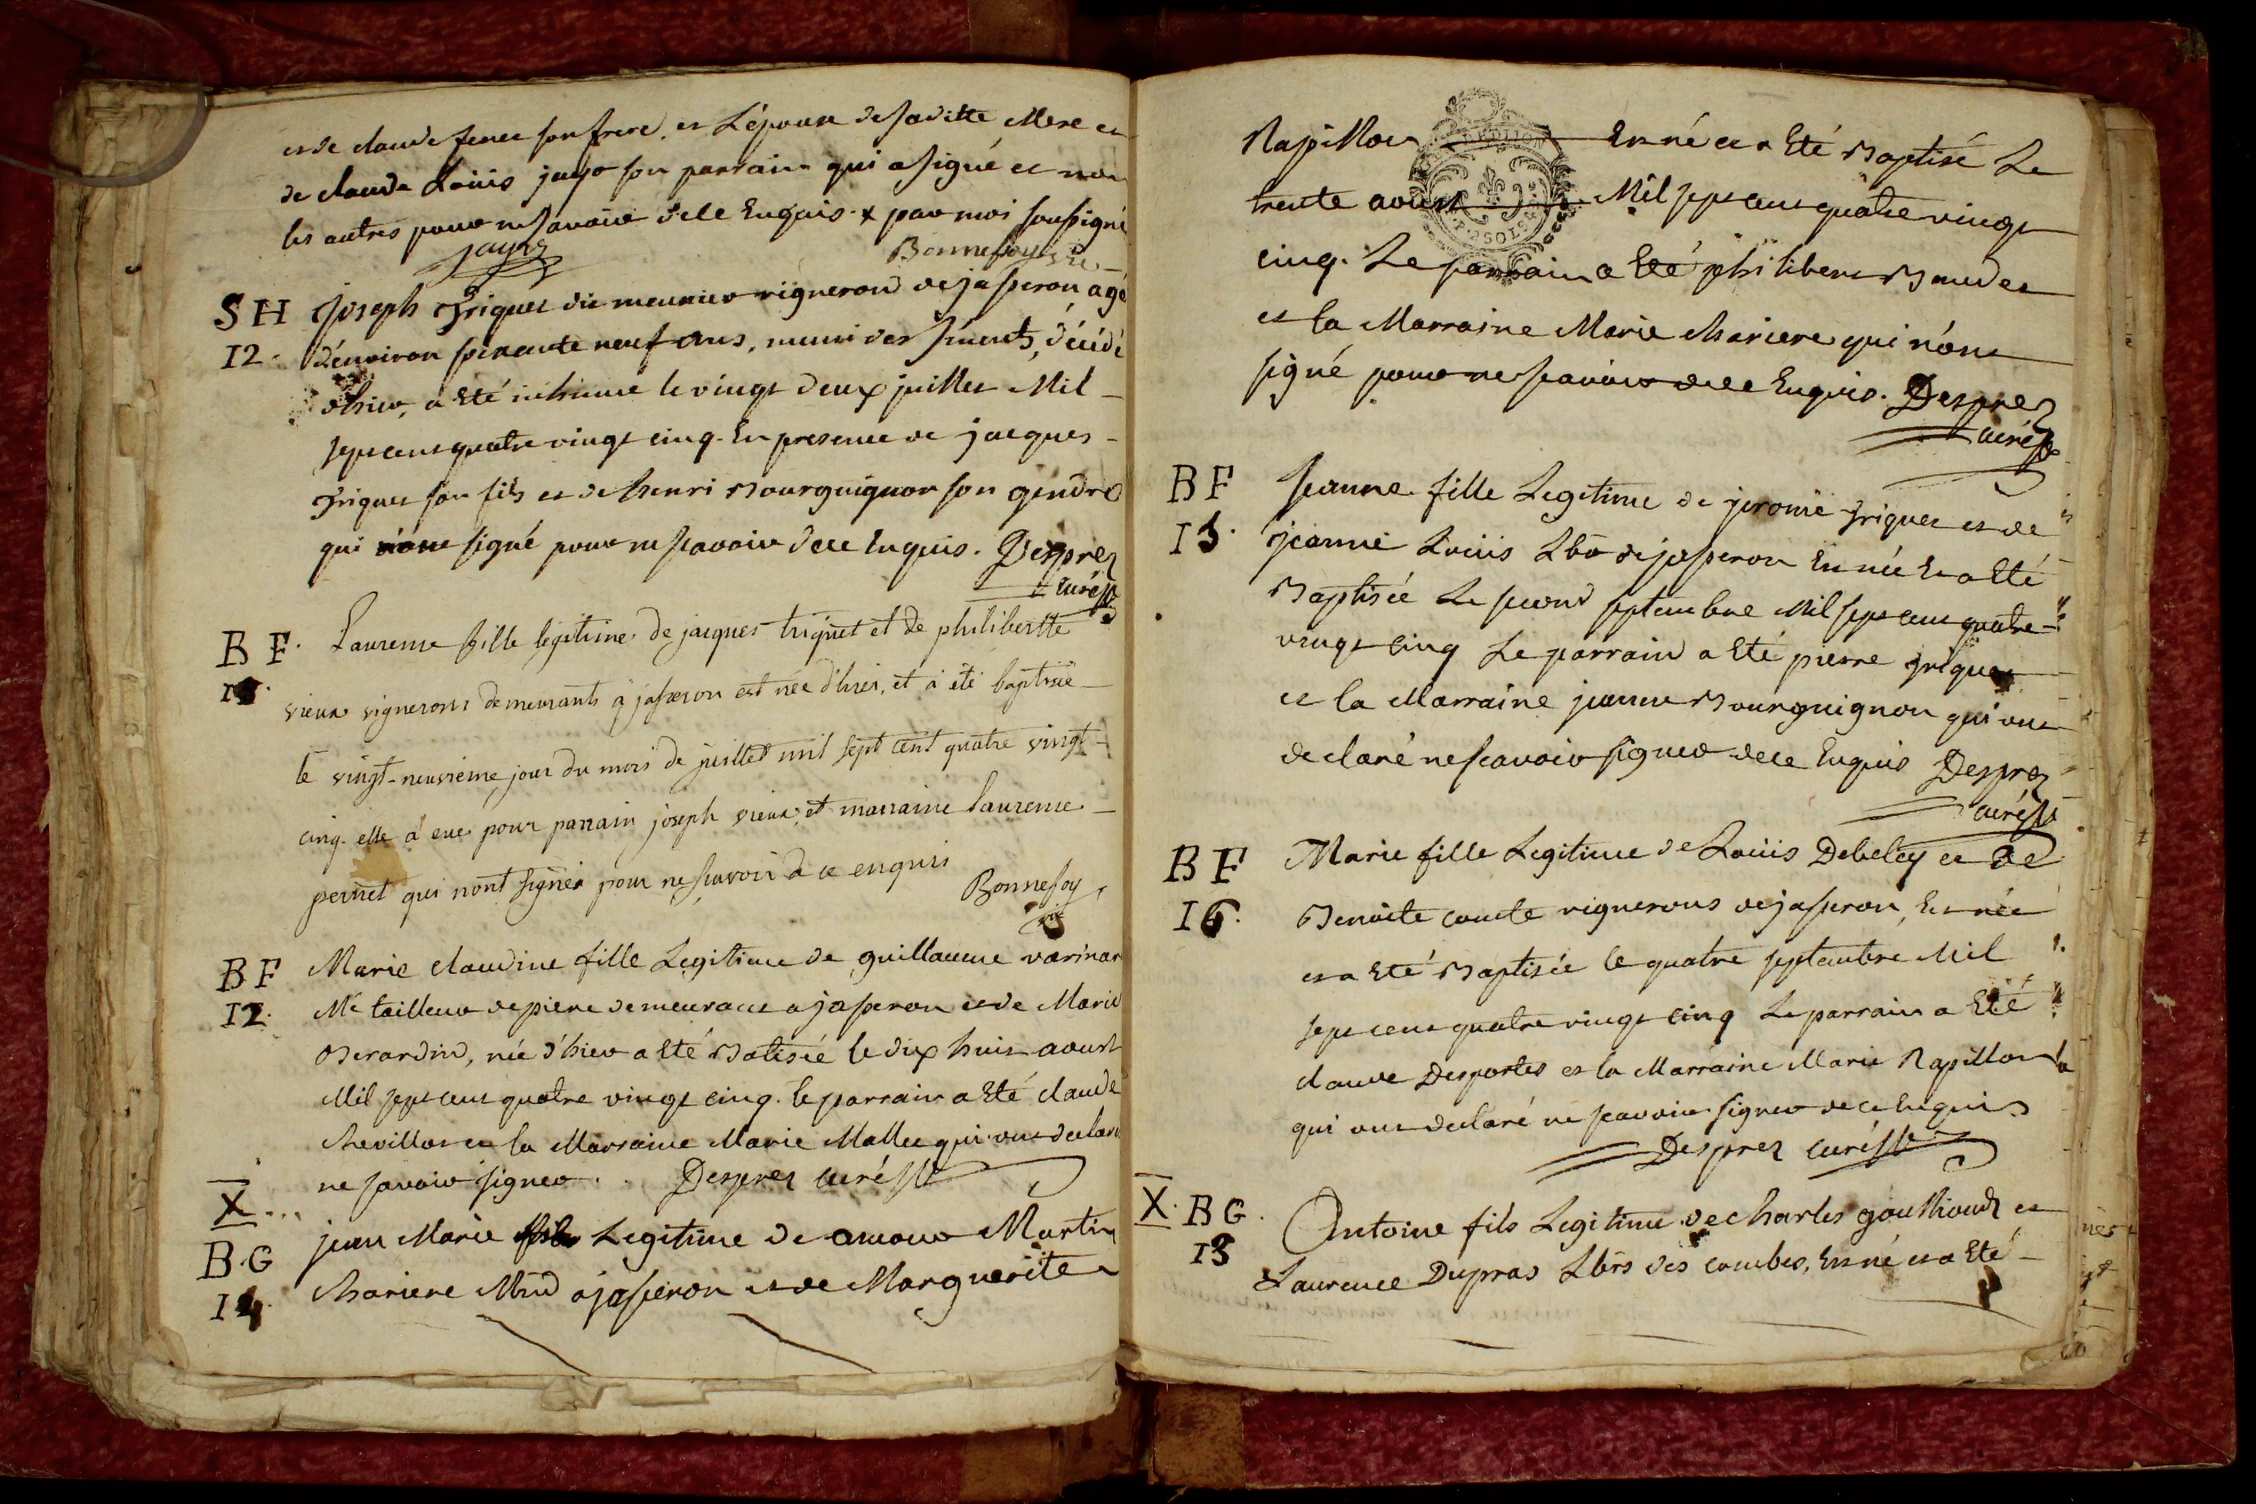 et de claude ferret son frere, et L'epoux de saditte Mere et
de claude Loüis jayr son parrain qui a signé et non
les autres pour ne savoir de ce Enquis. x par moi soussigné
jayr
Bonnefoy vic
SH joseph Triquet dit meunier vigneron de jasseron agé
12. d'environ soixante neuf ans, muni des srments, décédé
d'hier, a Eté inhumé le vingt deux juillet Mil
sept cent quatre vingt cinq. En presence de jacques
Triquet son fils et de henri Bourguignon son gendre
qui n'ont signé pour ne scavoir de ce Enquis. Desprez
curé
BF. Laurence fille legitime de jacques triquet et de philibertte
vieux vignerons demeurants à jasseron est née d'hier, et à été baptisée
le vingt-neuvieme jour du mois de juillet mil sept cent quatre vingt
cinq. elle a eue pour parrain joseph vieux et marraine laurence
pernet qui nont signés pour ne sçavoir à ce enquis
Bonnefoy
vic
BF Marie claudine fille Legitime de guillaume varinar
12. Me tailleur de piere demeurant a jasseron et de Marie
Berardin, née d'hier a Eté Batisée le dix huit aoust
Mil sept cent quatre vingt cinq. le parrain a Eté claude
Chevillon et la Marraine Marie Mallet qui ont declaré
ne savoir signer. Desprez curé
X...
B.G jean Marie fils Legitime de amour Martin
14. Chariere Mrd a jasseron et de Marguerite
Rapillon Est né et a Eté Baptisé Le
trente aoust Mil sept cent quatre vingt
cinq. Le parrain a Eté philibert Baudet
et la Marraine Marie Chariere qui n'ont
signé pour ne scavoir de ce Enquis. Desprez
curé
BF Jeanne fille Legitime de jerome Triquet et de
15. jeanne Loüis Lbr de jasseron Est née Et a Eté
Baptisée Le second septembre Mil sept cent quatre
vingt cinq Le parrain a Eté pierre Triquet
et la Marraine jeanne Bourguignon qui ont
declaré ne scavoir signer de ce Enquis Desprez
curé
BF Marie fille Legitime de Loüis Debeley et de
16. Benoite comte vignerons de jasseron, Est née
et a Eté Baptisée le quatre septembre Mil
sept cent quatre vingt cinq Le parrain a Eté
claude Desportes et la Marraine Marie Rapillon
qui ont declaré ne scavoir signer de ce Enquis
Desprez curé
X. BG. Antoine fils Legitime de Charles gouthioud et
15 Laurence Dupras Lbrs des combes, Est né et a Eté